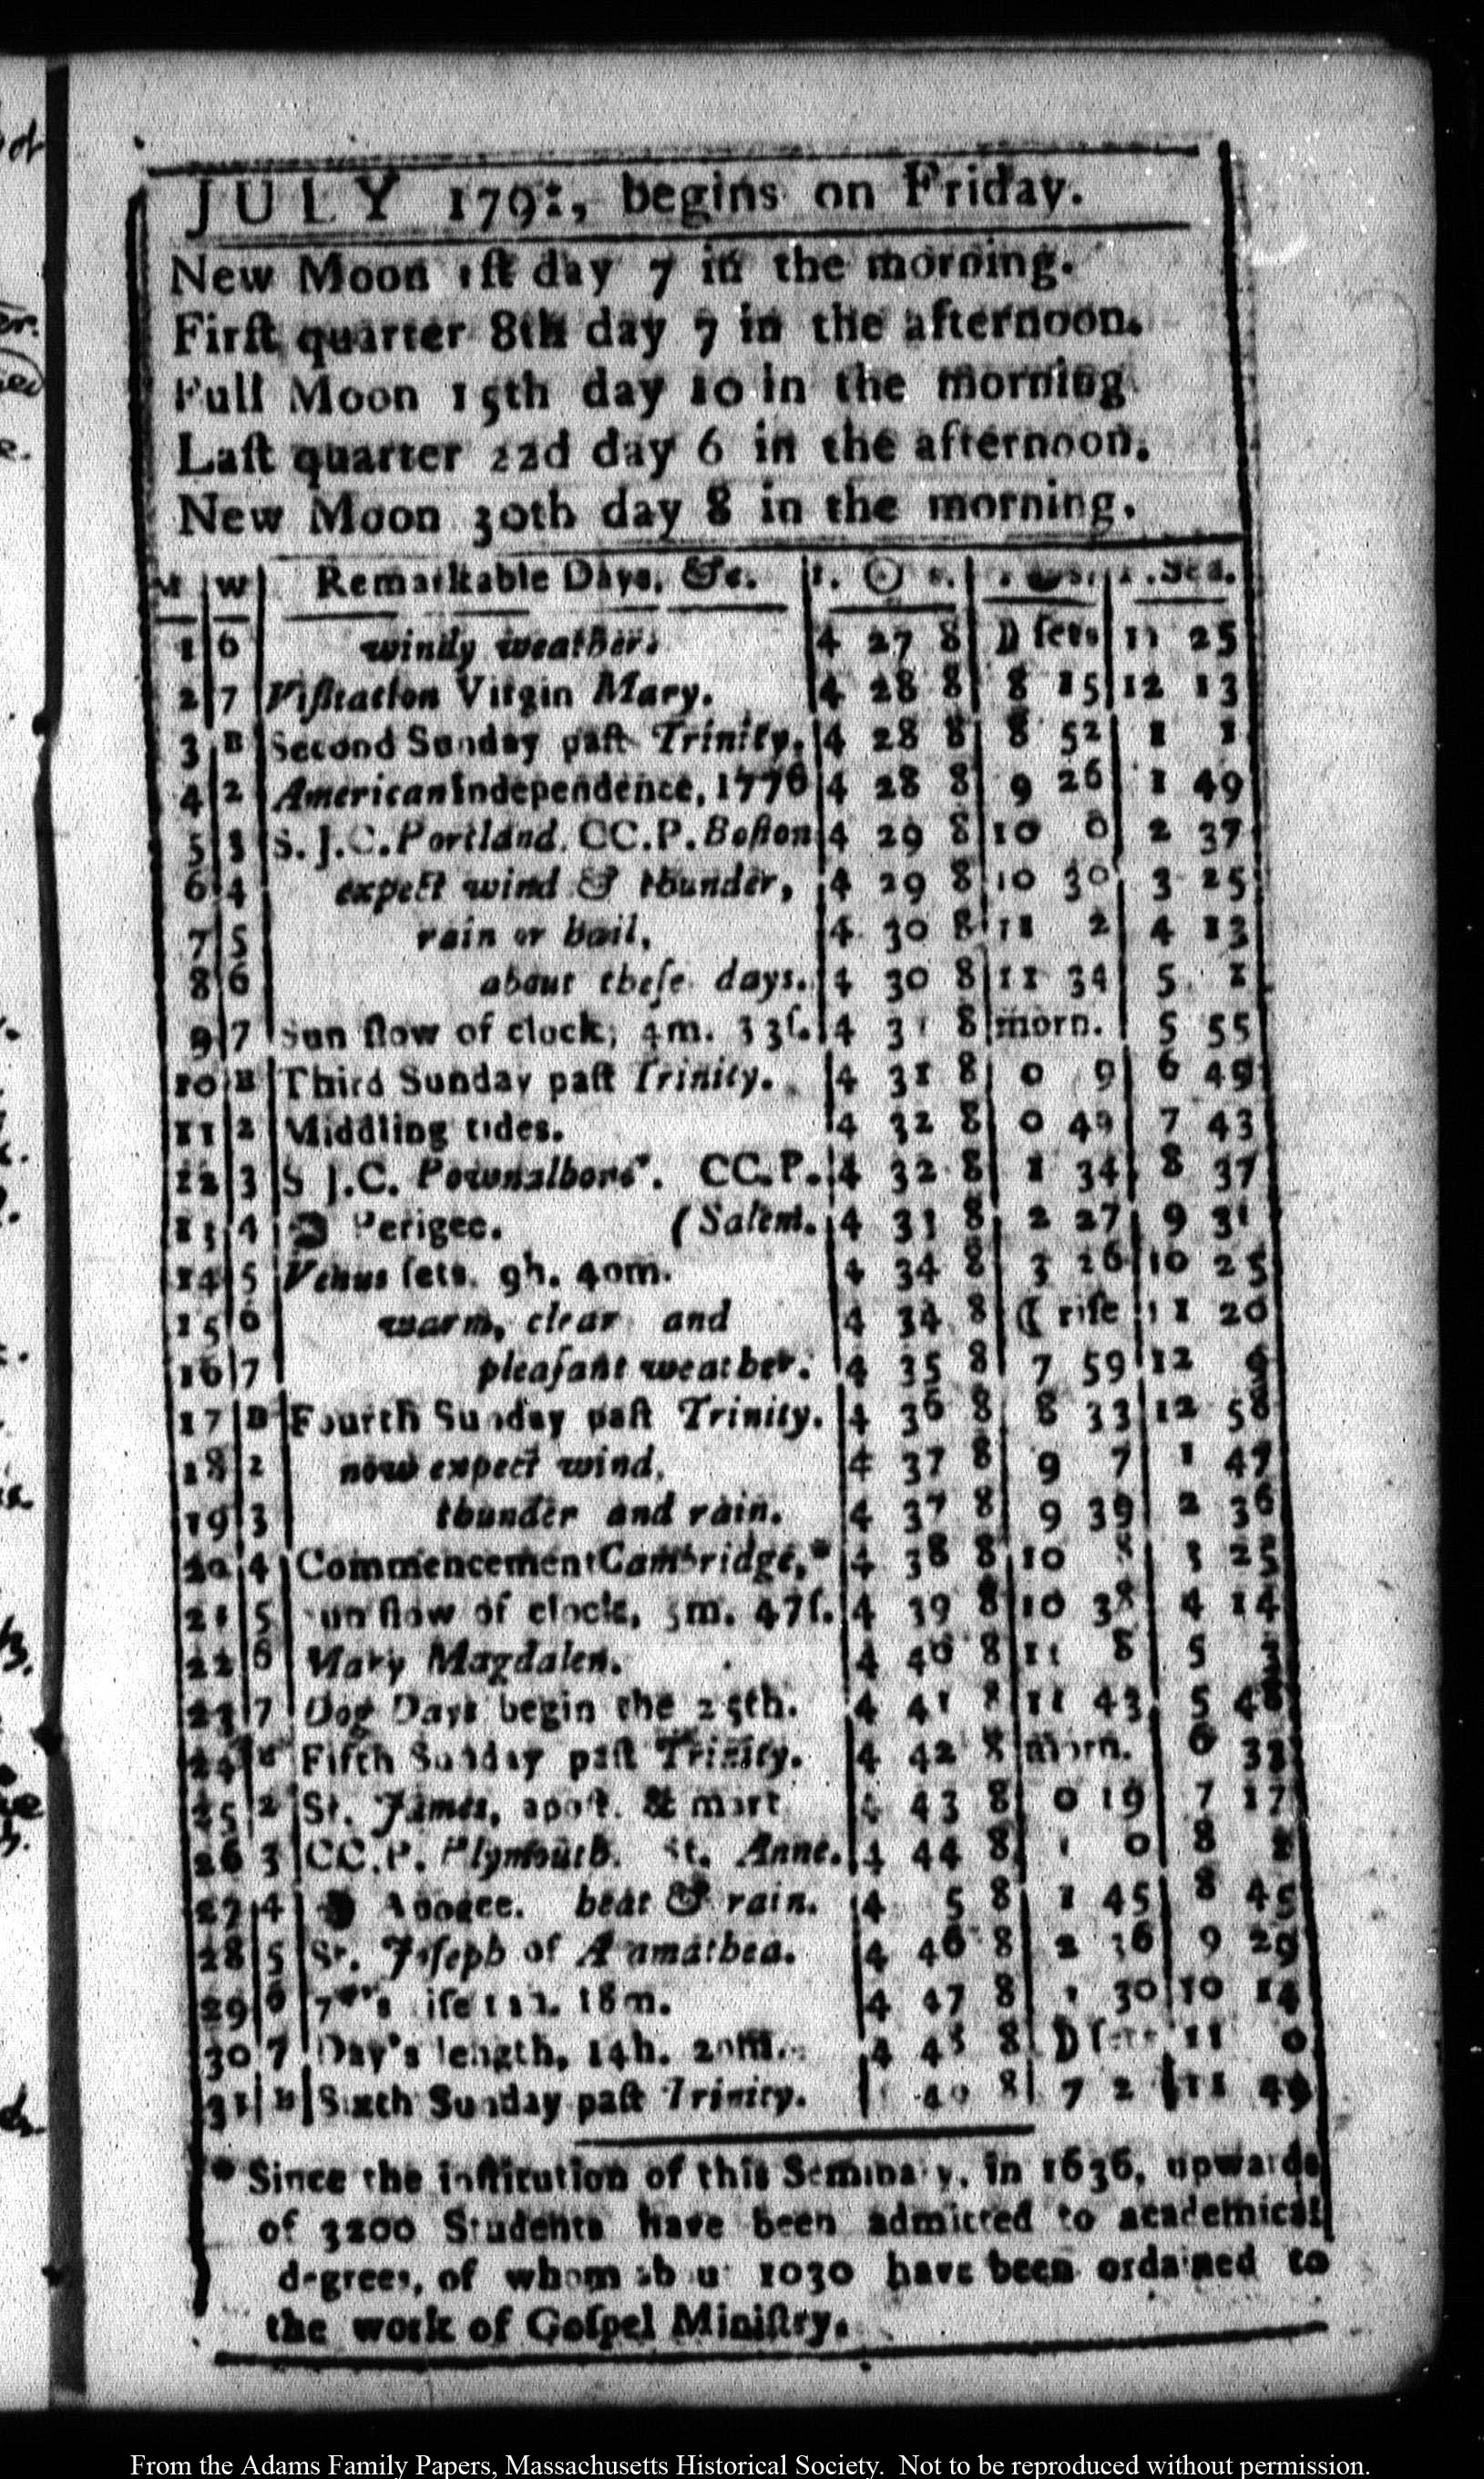 JULY 179:, begins on Friday.
New Moon 1ſt day 7 in the morning.
Firſt quarter 8th day 7 in the afternoon.
Full Moon 15th day 10 in the morning
Laſt quarter 22d day 6 in the afternoon.
New Moon 30th day 8 in the morning.
M W Remarkable Days, &c. r. ☉ s. Sea.
1 6 windy weather. 4 27 8 ☽ ſets 11 25
2 7 Viſitation Virgin Mary. 4 28 8 8 15 12 13
3 B Second Sunday paſt Trinity. 4 28 8 8 52 1 1
4 2 American Independence, 1776 4 28 8 9 26 1 49
5 3 S. J.C. Portland. CC.P. Boſton 4 29 8 10 0 2 37
6 4 expect wind & thunder, 4 29 8 10 30 3 25
7 5 rain or hail, 4 30 8 11 2 4 13
8 6 about theſe days. 4 30 8 11 34 5 1
9 7 Sun ſlow of clock, 4m. 33ſ. 4 31 8 morn. 5 55
10 B Third Sunday paſt Trinity. 4 31 8 0 9 6 49
11 2 Middling tides. 4 32 8 0 49 7 43
12 3 S J.C. Pownalboro'. CC.P. 4 32 8 1 34 8 37
13 4 ☽ Perigee. (Salem. 4 33 8 2 27 9 31
14 5 Venus ſets. 9h. 40m. 4 34 8 3 26 10 25
15 6 warm, clear and 4 34 8 ☾ riſe 11 20
16 7 pleaſant weather. 4 35 8 7 59 12 9
17 B Fourth Sunday paſt Trinity. 4 36 8 8 33 12 58
18 2 now expect wind, 4 37 8 9 7 1 47
19 3 thunder and rain. 4 37 8 9 39 2 36
20 4 Commencement Cambridge,* 4 38 8 10 8 3 25
21 5 Sun ſlow of clock, 5m. 47ſ. 4 39 8 10 38 4 14
22 6 Mary Magdalen. 4 40 8 11 8 5 3
23 7 Dog Days begin the 25th. 4 41 8 11 43 5 48
24 B Fifth Sunday paſt Trinity. 4 42 8 morn. 6 33
25 2 St. James, apoſt. & mart 4 43 8 0 19 7 17
26 3 CC.P. Plymouth. St. Anne. 4 44 8 1 0 8 2
27 4 ☽ Apogee. heat & rain. 4 5 8 1 45 8 45
28 5 St. Joſeph of A amathea. 4 46 8 2 36 9 29
29 6 7*'s iſe 18m. 4 47 8 30 10 14
30 7 Day's length, 14h. 20m. 4 48 8 ☽ ſets 11 0
31 B Sixth Sunday paſt Trinity. 49 8 7 2 11 49
* Since the inſtitution of this Seminary, in 1636, upwards
of 3200 Students have been admitted to academical
degrees, of whom about 1030 have been ordained to
the work of Goſpel Miniſtry.
From the Adams Family Papers, Massachusetts Historical Society. Not to be reproduced without permission.